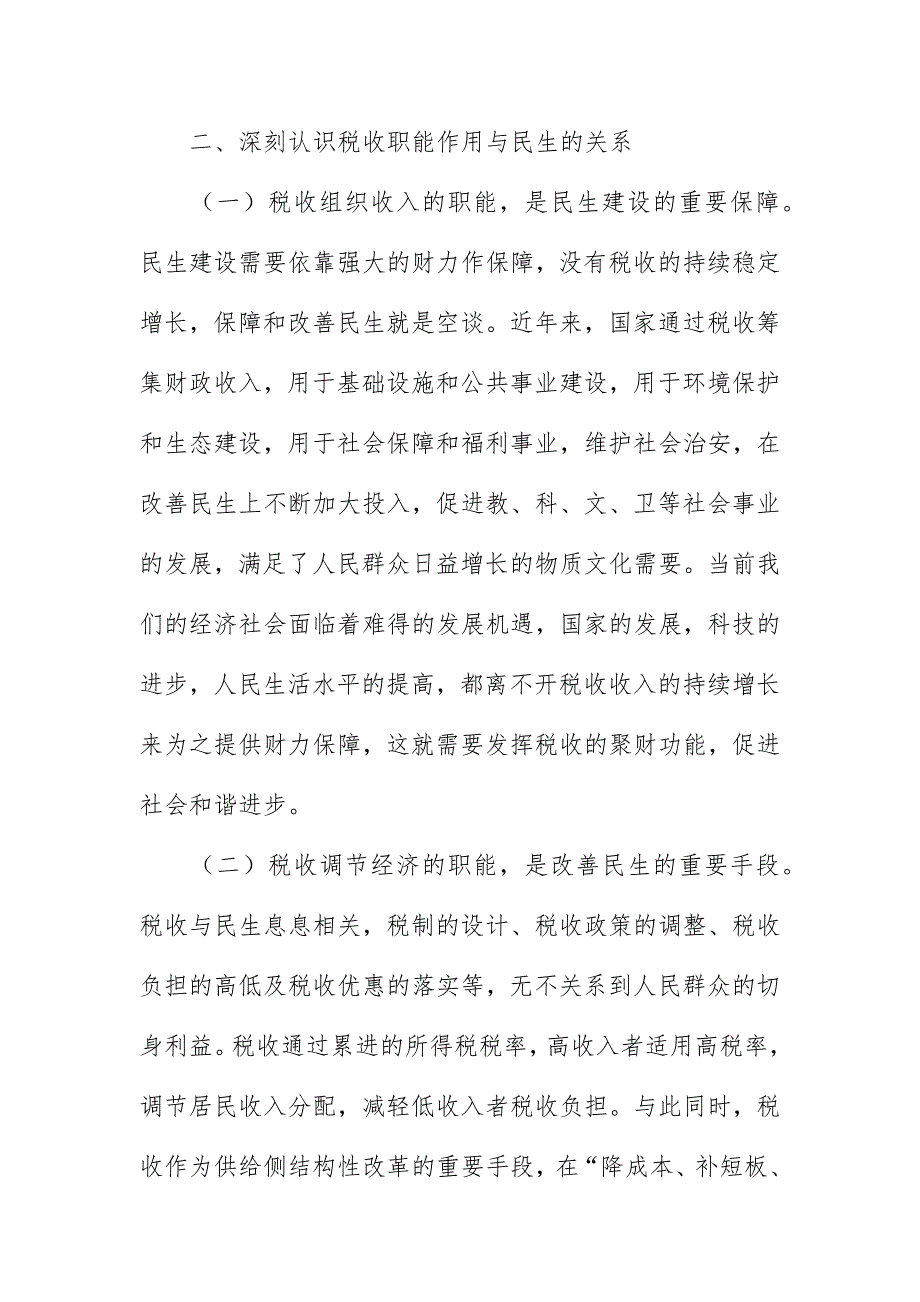 二、深刻认识税收职能作用与民生的关系
（一）税收组织收入的职能，是民生建设的重要保障。
民生建设需要依靠强大的财力作保障，没有税收的持续稳定
增长，保障和改善民生就是空谈。近年来，国家通过税收筹
集财政收入，用于基础设施和公共事业建设，用于环境保护
和生态建设，用于社会保障和福利事业，维护社会治安，在
改善民生上不断加大投入，促进教、科、文、卫等社会事业
的发展，满足了人民群众日益增长的物质文化需要。当前我
们的经济社会面临着难得的发展机遇，国家的发展，科技的
进步，人民生活水平的提高，都离不开税收收入的持续增长
来为之提供财力保障，这就需要发挥税收的聚财功能，促进
社会和谐进步。
（二）税收调节经济的职能，是改善民生的重要手段。
税收与民生息息相关，税制的设计、税收政策的调整、税收
负担的高低及税收优惠的落实等，无不关系到人民群众的切
身利益。税收通过累进的所得税税率，高收入者适用高税率，
调节居民收入分配，减轻低收入者税收负担。与此同时，税
收作为供给侧结构性改革的重要手段，在“降成本、补短板、